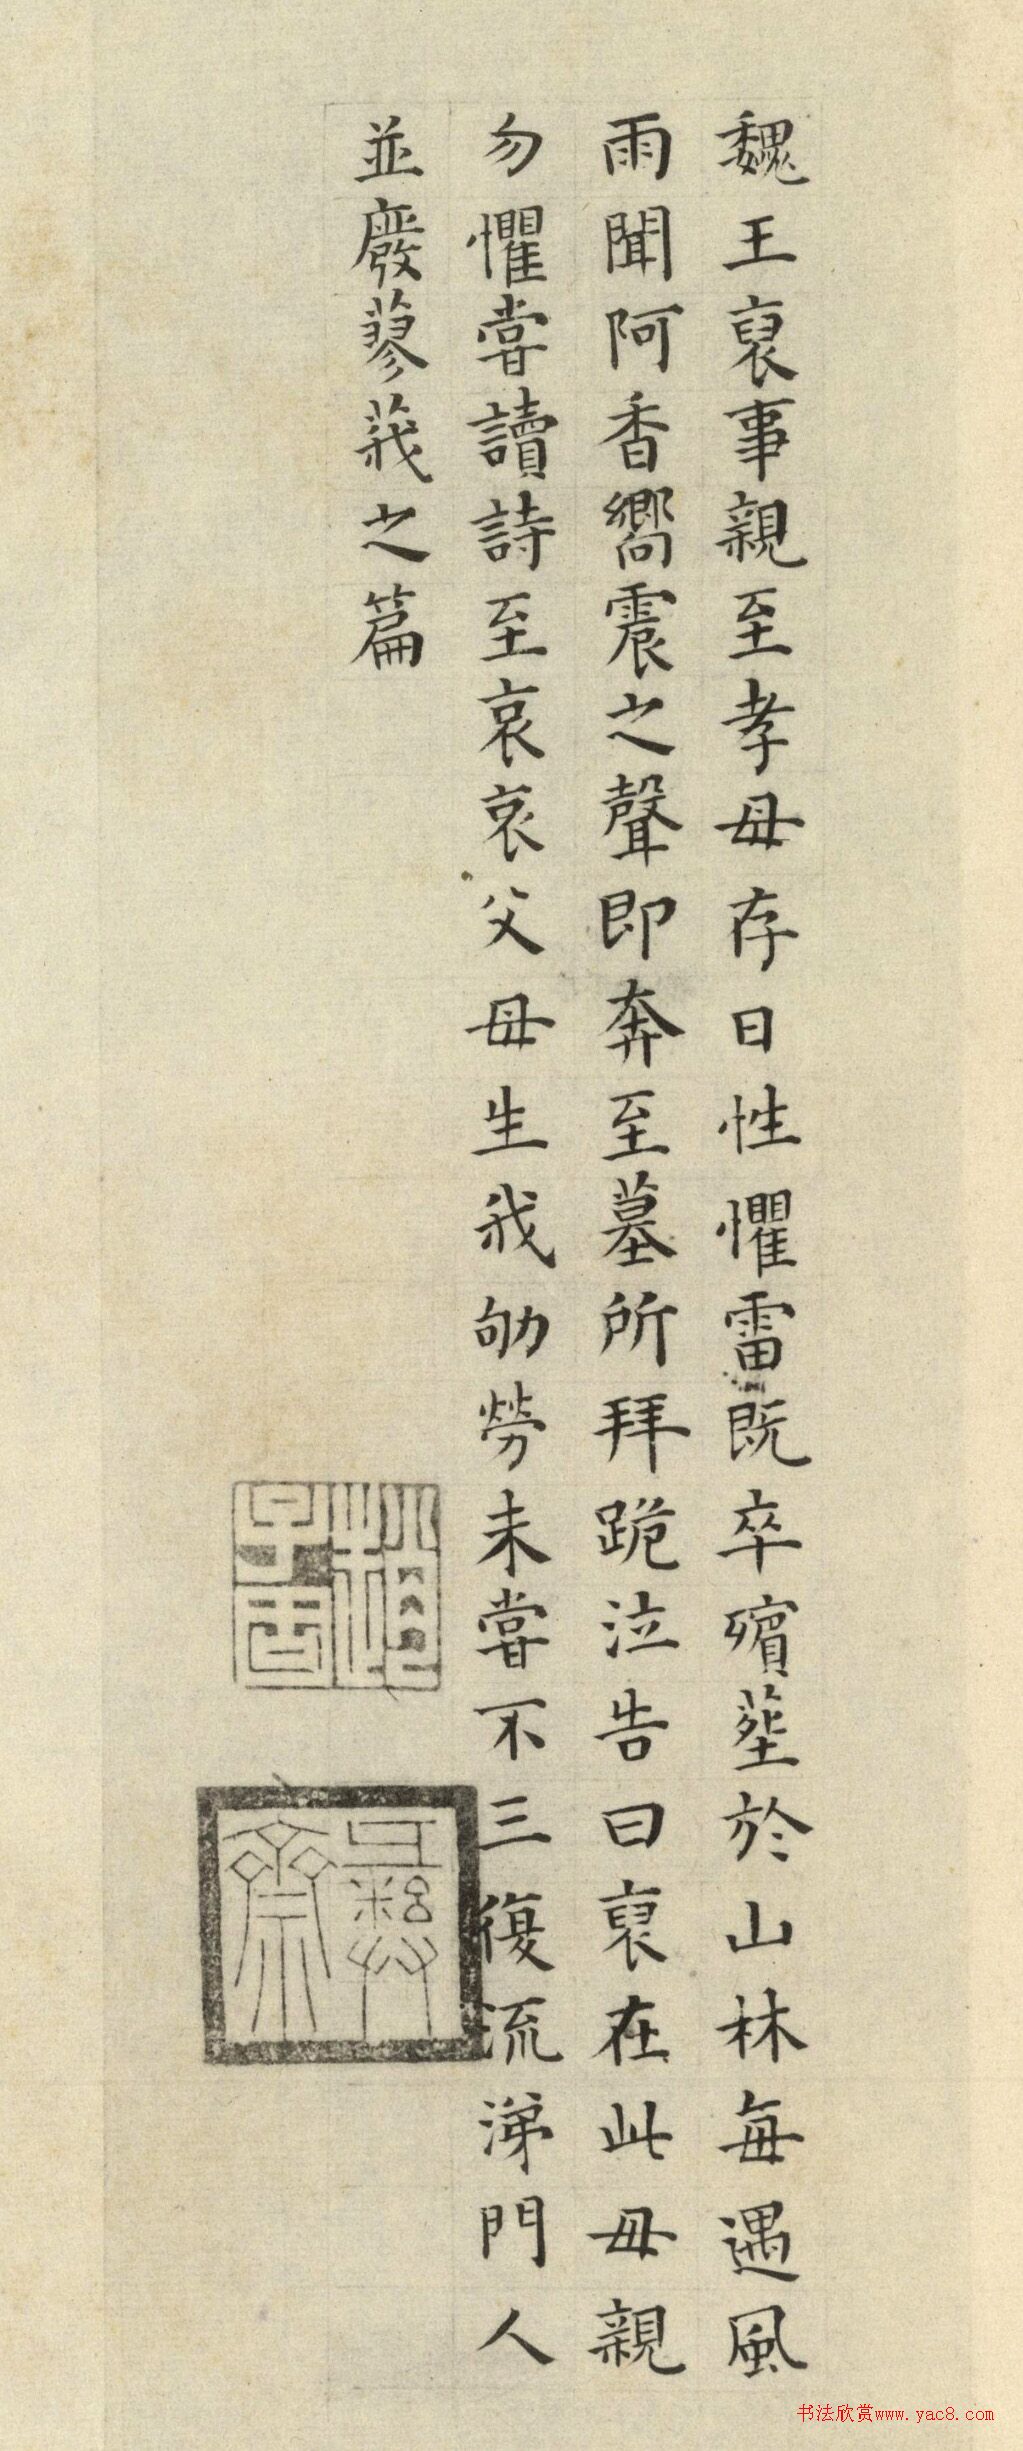 魏王裒事親至孝母存日性懼雷既卒殯塟於山林每遇風
雨聞阿香嚮震之聲即奔至墓所拜跪泣告曰裒在此母親
勿懼甞讀詩至哀哀父母生我劬勞未甞不三復流涕門人
並廢蓼莪之篇
书法欣赏www.yac8.com